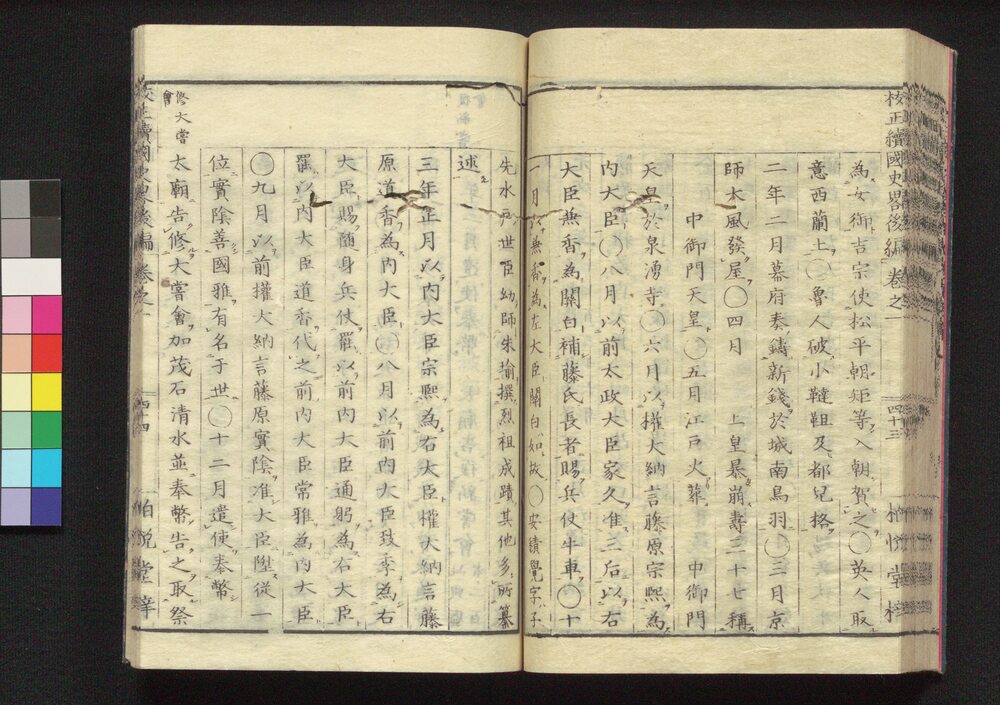 校正續國史畧後編 卷之一 四十三 柏悅堂梓
為女御吉宗使松平朝矩等入朝賀之〇英人取
意西蘭上〇魯人破小韃靼及都兒格
二年二月幕府奏鑄新錢於城南鳥羽〇三月京
師大風發屋〇四月 上皇暴崩壽三十七稱
中御門天皇〇五月江戶火葬 中御門
天皇於泉湧寺〇六月以權大納言藤原宗熙為
內大臣〇八月以前太政大臣家久准三后以右
大臣兼香為關白補藤氏長者賜兵仗牛車〇十
一月以兼香為左大臣關白如故〇安積覺字子
先水戶世臣幼師朱揄撰烈祖成蹟其他多所纂
述
三年正月以內大臣宗熙為右大臣權大納言藤
原道香為內大臣〇八月以前內大臣致季為右
大臣賜隨身兵仗罷以前內大臣通躬為右大臣
罷以內大臣道香代之前內大臣常雅為內大臣
〇九月以前權大納言藤原實陰准大臣陞從一
位實陰善國雅有名于世〇十二月遣使奉幣
太廟告修大嘗會加茂石清水並奉幣告之取祭
修大嘗
會
校正續國史畧後編 卷之一 四十四 柏悅堂梓